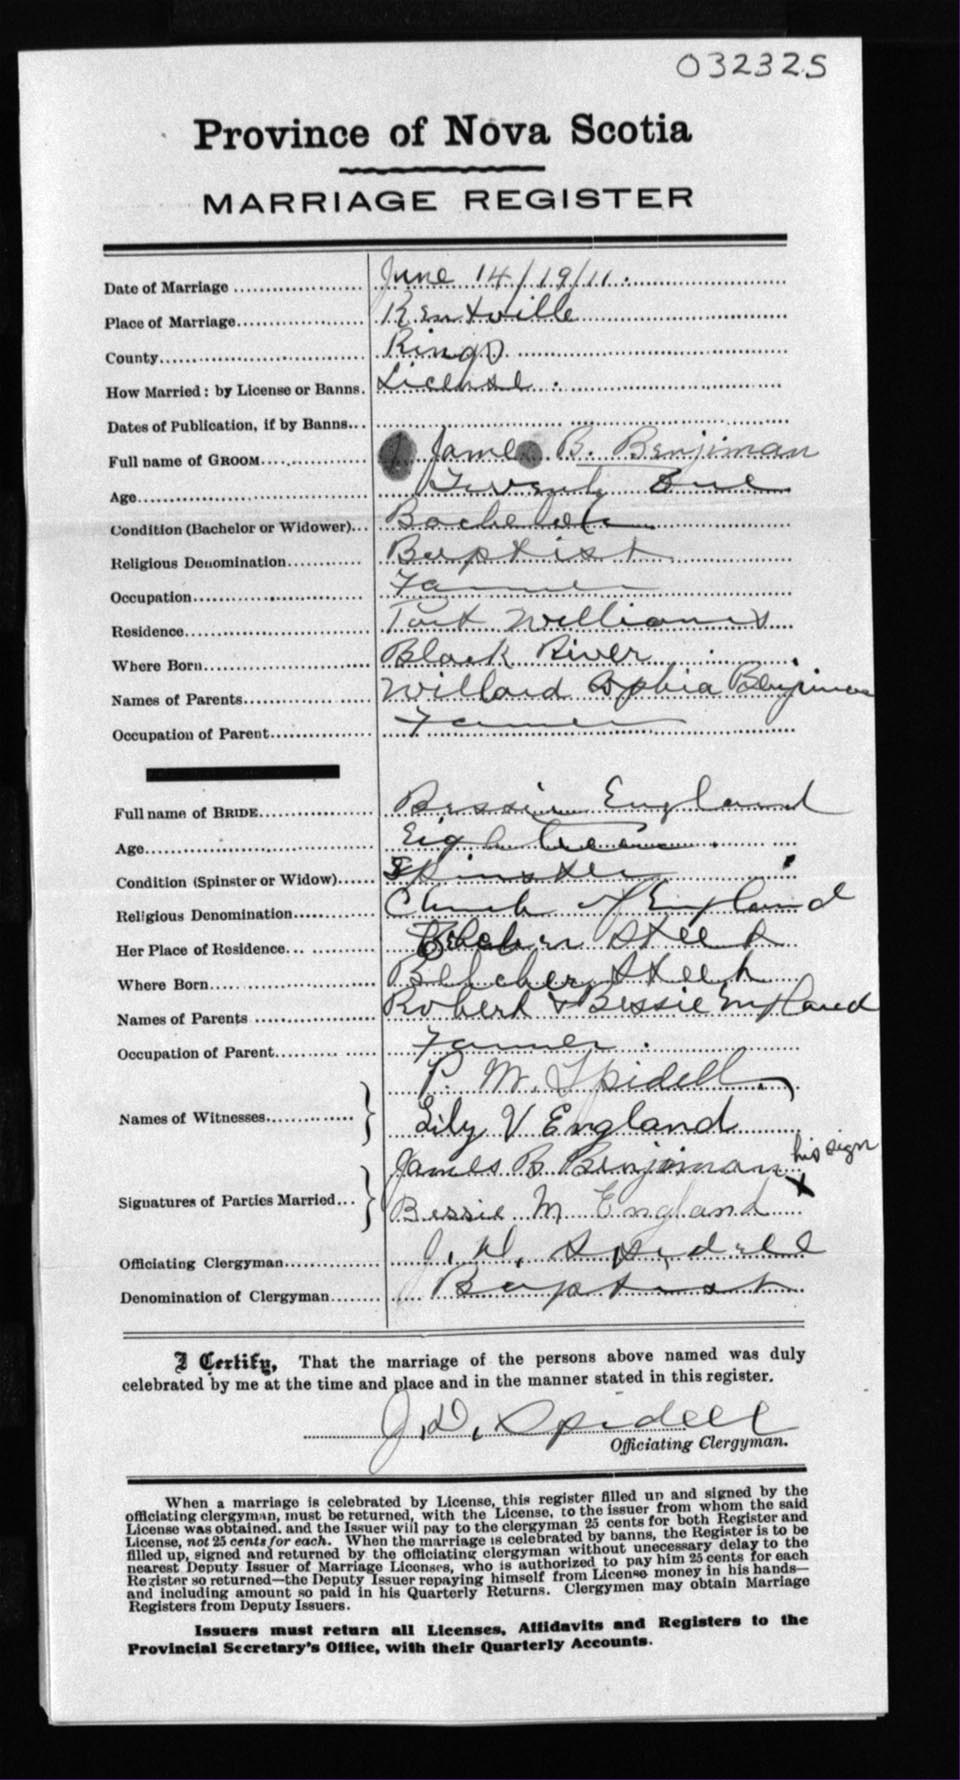 032325
Province of Nova Scotia
MARRIAGE REGISTER
Date of Marriage June 14/19/11.
Place of Marriage Kentville
County Kings
How Married: by License or Banns. License.
Dates of Publication, if by Banns
Full name of GROOM James B. Benjiman
Age Twenty One
Condition (Bachelor or Widower) Bachelor
Religious Denomination Baptist
Occupation Farmer
Residence Port Williams
Where Born Black River
Names of Parents Willard Sophia Benjiman
Occupation of Parent Farmer
Full name of BRIDE Bessie England
Age Eighteen.
Condition (Spinster or Widow) Spinster
Religious Denomination Church of England
Her Place of Residence Belcher Street
Where Born Belcher Street
Names of Parents Robert & Bessie England
Occupation of Parent Farmer.
P. M. Spidell
Names of Witnesses
Lily V England
James B Benjiman his sign X
Signatures of Parties Married
Bessie M England
Officiating Clergyman J. D. Spidell
Denomination of Clergyman Baptist
I Certify, That the marriage of the persons above named was duly
celebrated by me at the time and place and in the manner stated in this register.
J. D. Spidell
Officiating Clergyman.
When a marriage is celebrated by License, this register filled up and signed by the
officiating clergyman, must be returned, with the License, to the issuer from whom the said
License was obtained, and the Issuer will pay to the clergyman 25 cents for both Register and
License, not 25 cents for each. When the marriage is celebrated by banns, the Register is to be
filled up, signed and returned by the officiating clergyman without unecessary delay to the
nearest Deputy Issuer of Marriage Licenses, who is authorized to pay him 25 cents for each
Register so returned—the Deputy Issuer repaying himself from License money in his hands—
and including amount so paid in his Quarterly Returns. Clergymen may obtain Marriage
Registers from Deputy Issuers.
Issuers must return all Licenses, Affidavits and Registers to the
Provincial Secretary's Office, with their Quarterly Accounts.